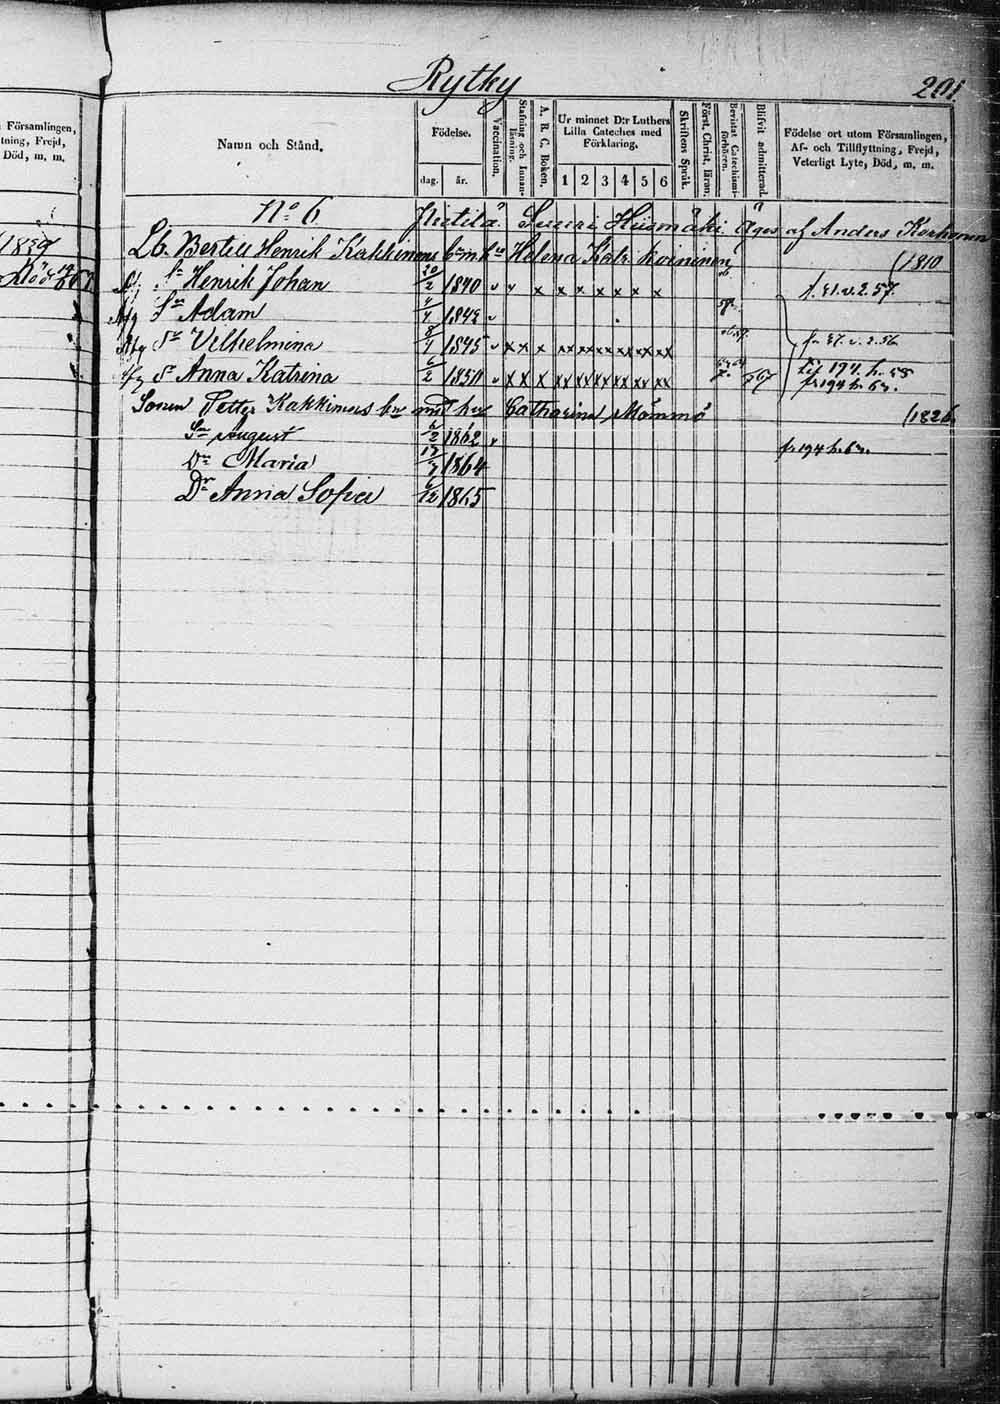 Rytky
201.
Församlingen,
tning, Frejd,
Död, m. m.
Namn och Stånd.
Födelse.
dag.
år.
Vaccination.
Stafning och Innan-
läsning.
A. B. C. Boken.
Ur minnet D:r Luthers
Lilla Cateches med
Förklaring.
1 2 3 4 5 6
Skriftens Språk.
Först. Christ. läran.
Bevistat Catechismi-
förhören.
Blifvit admitterad.
Födelse ort utom Församlingen,
Af- och Tillflyttning, Frejd,
Veterligt Lyte, Död, m. m.
No 6 Suuri Hiismäki äges af Anders Korhonen
Lb. Bertill Henrik Kakkinens bm hu Helena Katr. Koininen (1810
Sn Henrik Johan 20/2 1840 v v x x x x x x x f. 41. v. 2. 57.
Sn Adam 4/4 1842 v
Dr Vilhelmina 8/4 1845 v xx x x xx xx xx xx xx xx
Dr Anna Katrina 6/2 1850 v xx x x xx xx xx xx xx xx 67 til 194. h. 58
fr 194 h. 63.
Sonen Petter Kakkinens bm med hu Catharina Mömmö (1826
Sn August 6/2 1862 v fr 194 h. 63.
Dr Maria 17/7 1864
Dr Anna Sofia 6/12 1865